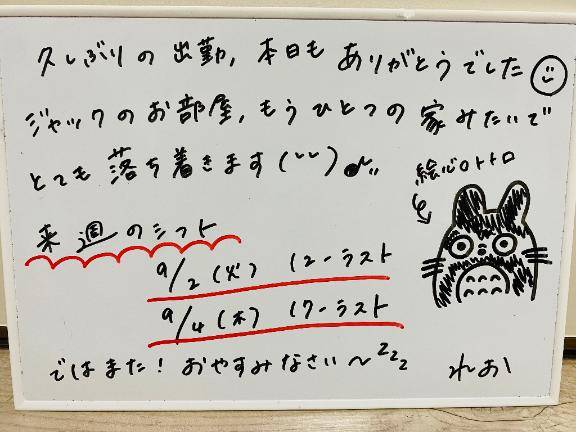 久しぶりの出勤, 本日も ありがとうでした
ジャックのお部屋, もうひとつの 家みたいで
とても 落ち着きます(˘˘)♪
絵心0トトロ
来週のシフト
9/2 (火) 12-ラスト
9/4 (木) 17-ラスト
ではまた! おやすみなさい〜zzz
れお